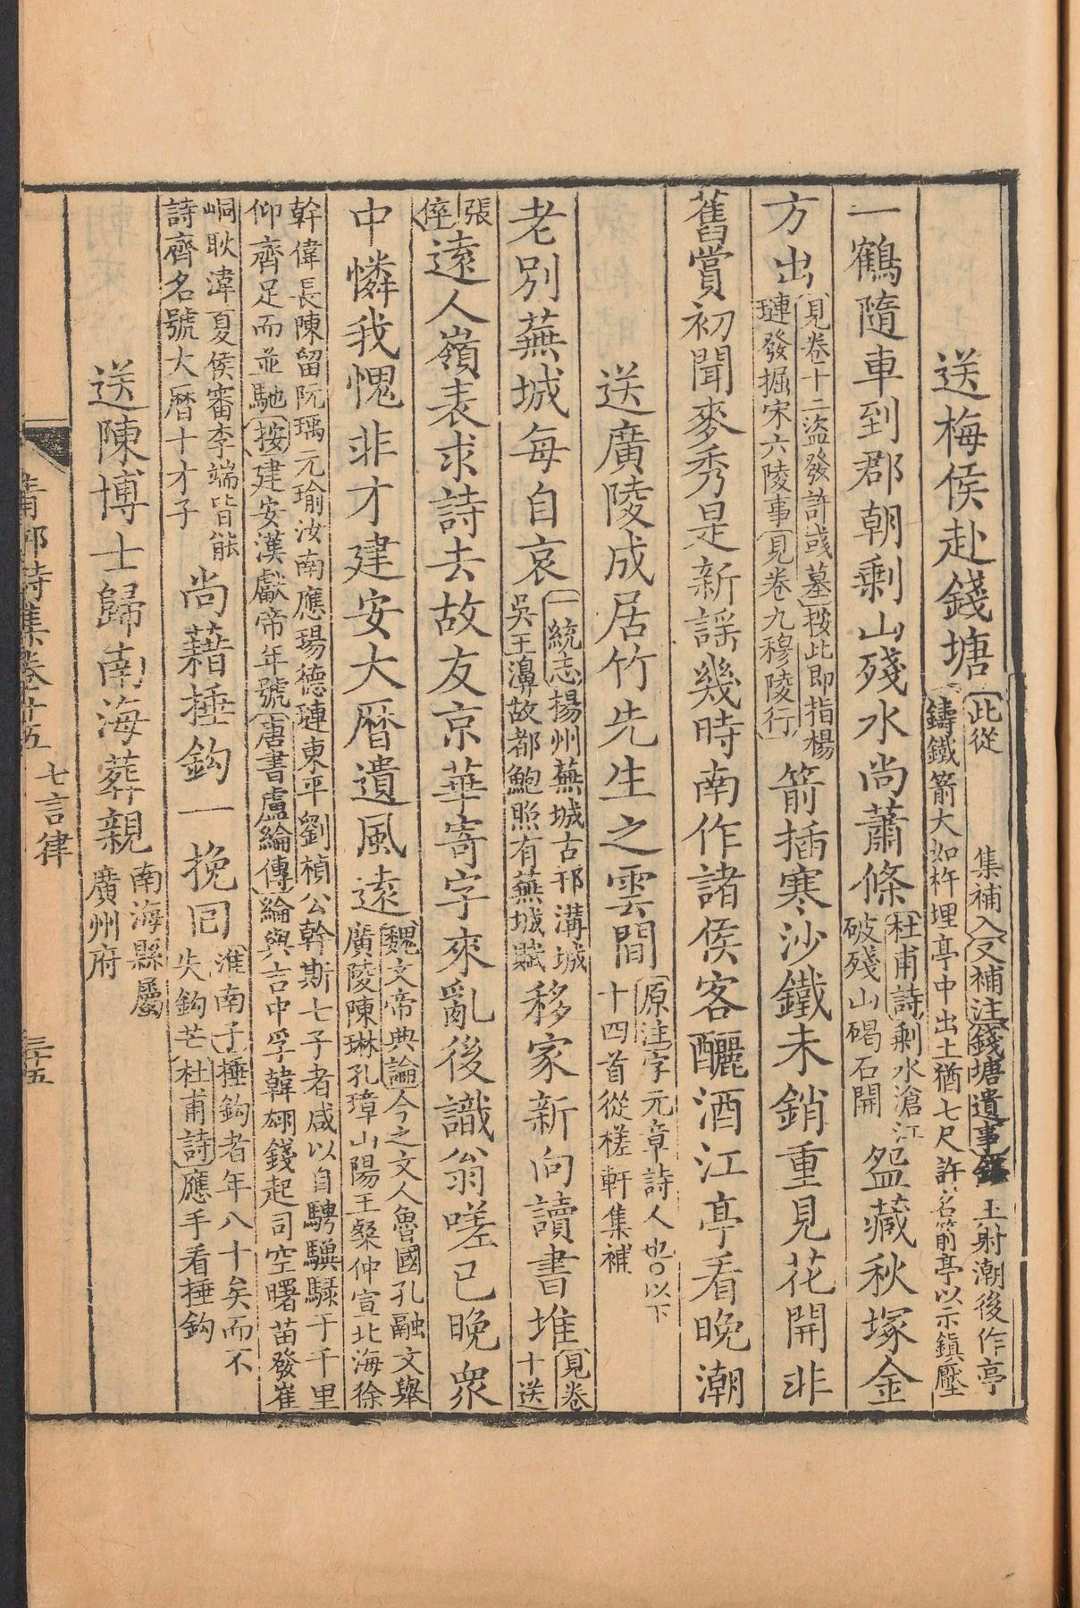 送梅侯赴錢塘此從　集補入又補注錢塘遺事　王射潮後作亭鑄鐵箭大如杵埋亭中出土猶七尺許名箭亭以示鎮壓
一鶴隨車到郡朝剩山殘水尚蕭條杜甫詩剩水滄江破殘山碣石開盌藏秋塚金
方出見卷十二盜發許彧墓按此即指楊璉發掘宋六陵事見卷九穆陵行箭插寒沙鐵未銷重見花開非
舊賞初聞麥秀是新謡幾時南作諸侯客釃酒江亭看晚潮
送廣陵成居竹先生之雲間原注字元章詩人也○以下十四首從槎軒集補
老別蕪城每自哀一統志揚州蕪城古邗溝城吳王濞故都鮑照有蕪城賦移家新向讀書堆見卷十送
張倅遠人嶺表求詩去故友京華寄字來亂後識翁嗟已晚衆
中憐我愧非才建安大曆遺風遠魏文帝典論今之文人魯國孔融文舉廣陵陳琳孔璋山陽王粲仲宣北海徐
幹偉長陳留阮瑀元瑜汝南應瑒德璉東平劉楨公幹斯七子者咸以自騁驥騄于千里仰齊足而並馳按建安漢獻帝年號唐書盧綸傳綸與吉中孚韓翃錢起司空曙苗發崔
峒耿湋夏侯審李端皆能詩齊名號大曆十才子尚藉捶鈎一挽回淮南子捶鈎者年八十矣而不失鈎芒杜甫詩應手看捶鈎
送陳博士歸南海葬親南海縣屬廣州府
青邱詩集卷十五　七言律　三十五